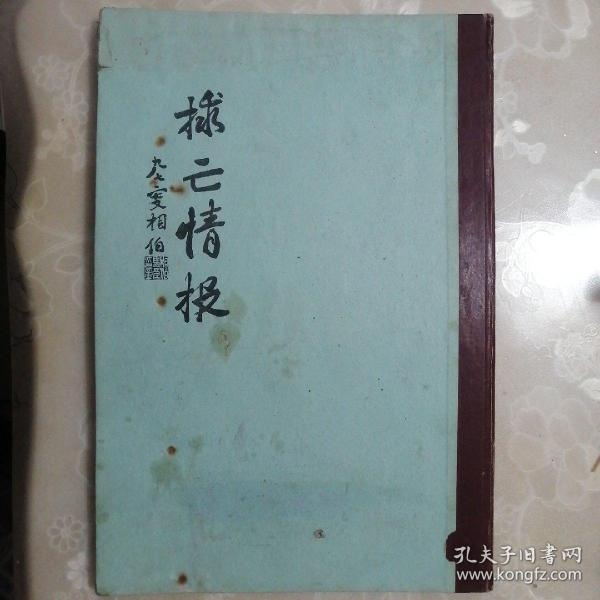 捄亡情报
九七叟相伯
孔夫子旧书网
www.kongfz.com